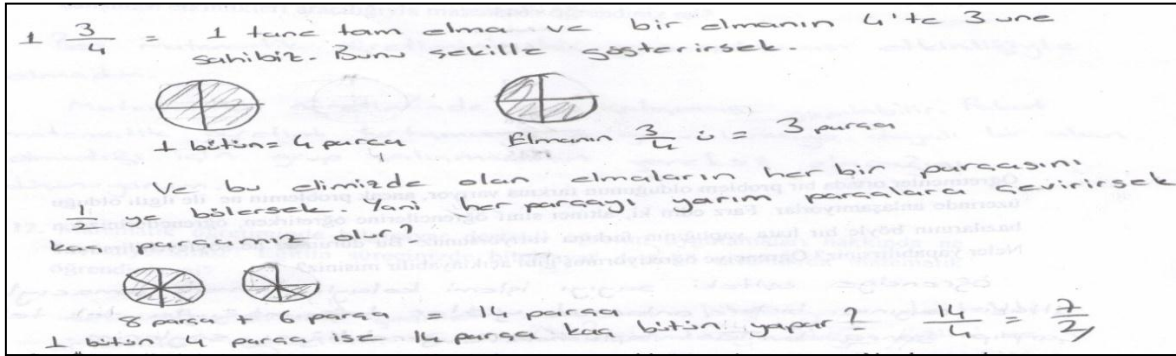 1 3/4 = 1 tane tam elma ve bir elmanın 4'te 3üne
sahibiz. Bunu şekille gösterirsek.
1 bütün = 4 parça Elmanın 3/4 ü = 3 parça
Ve bu elimizde olan elmaların her bir parçasını
1/2 ye bölersek. Yani her parçayı yarım parçaya çevirirsek
kaç parçamız olur?
8 parça + 6 parça = 14 parça
1 bütün 4 parça ise 14 parça kaç bütün yapar? 14/4 = 7/2